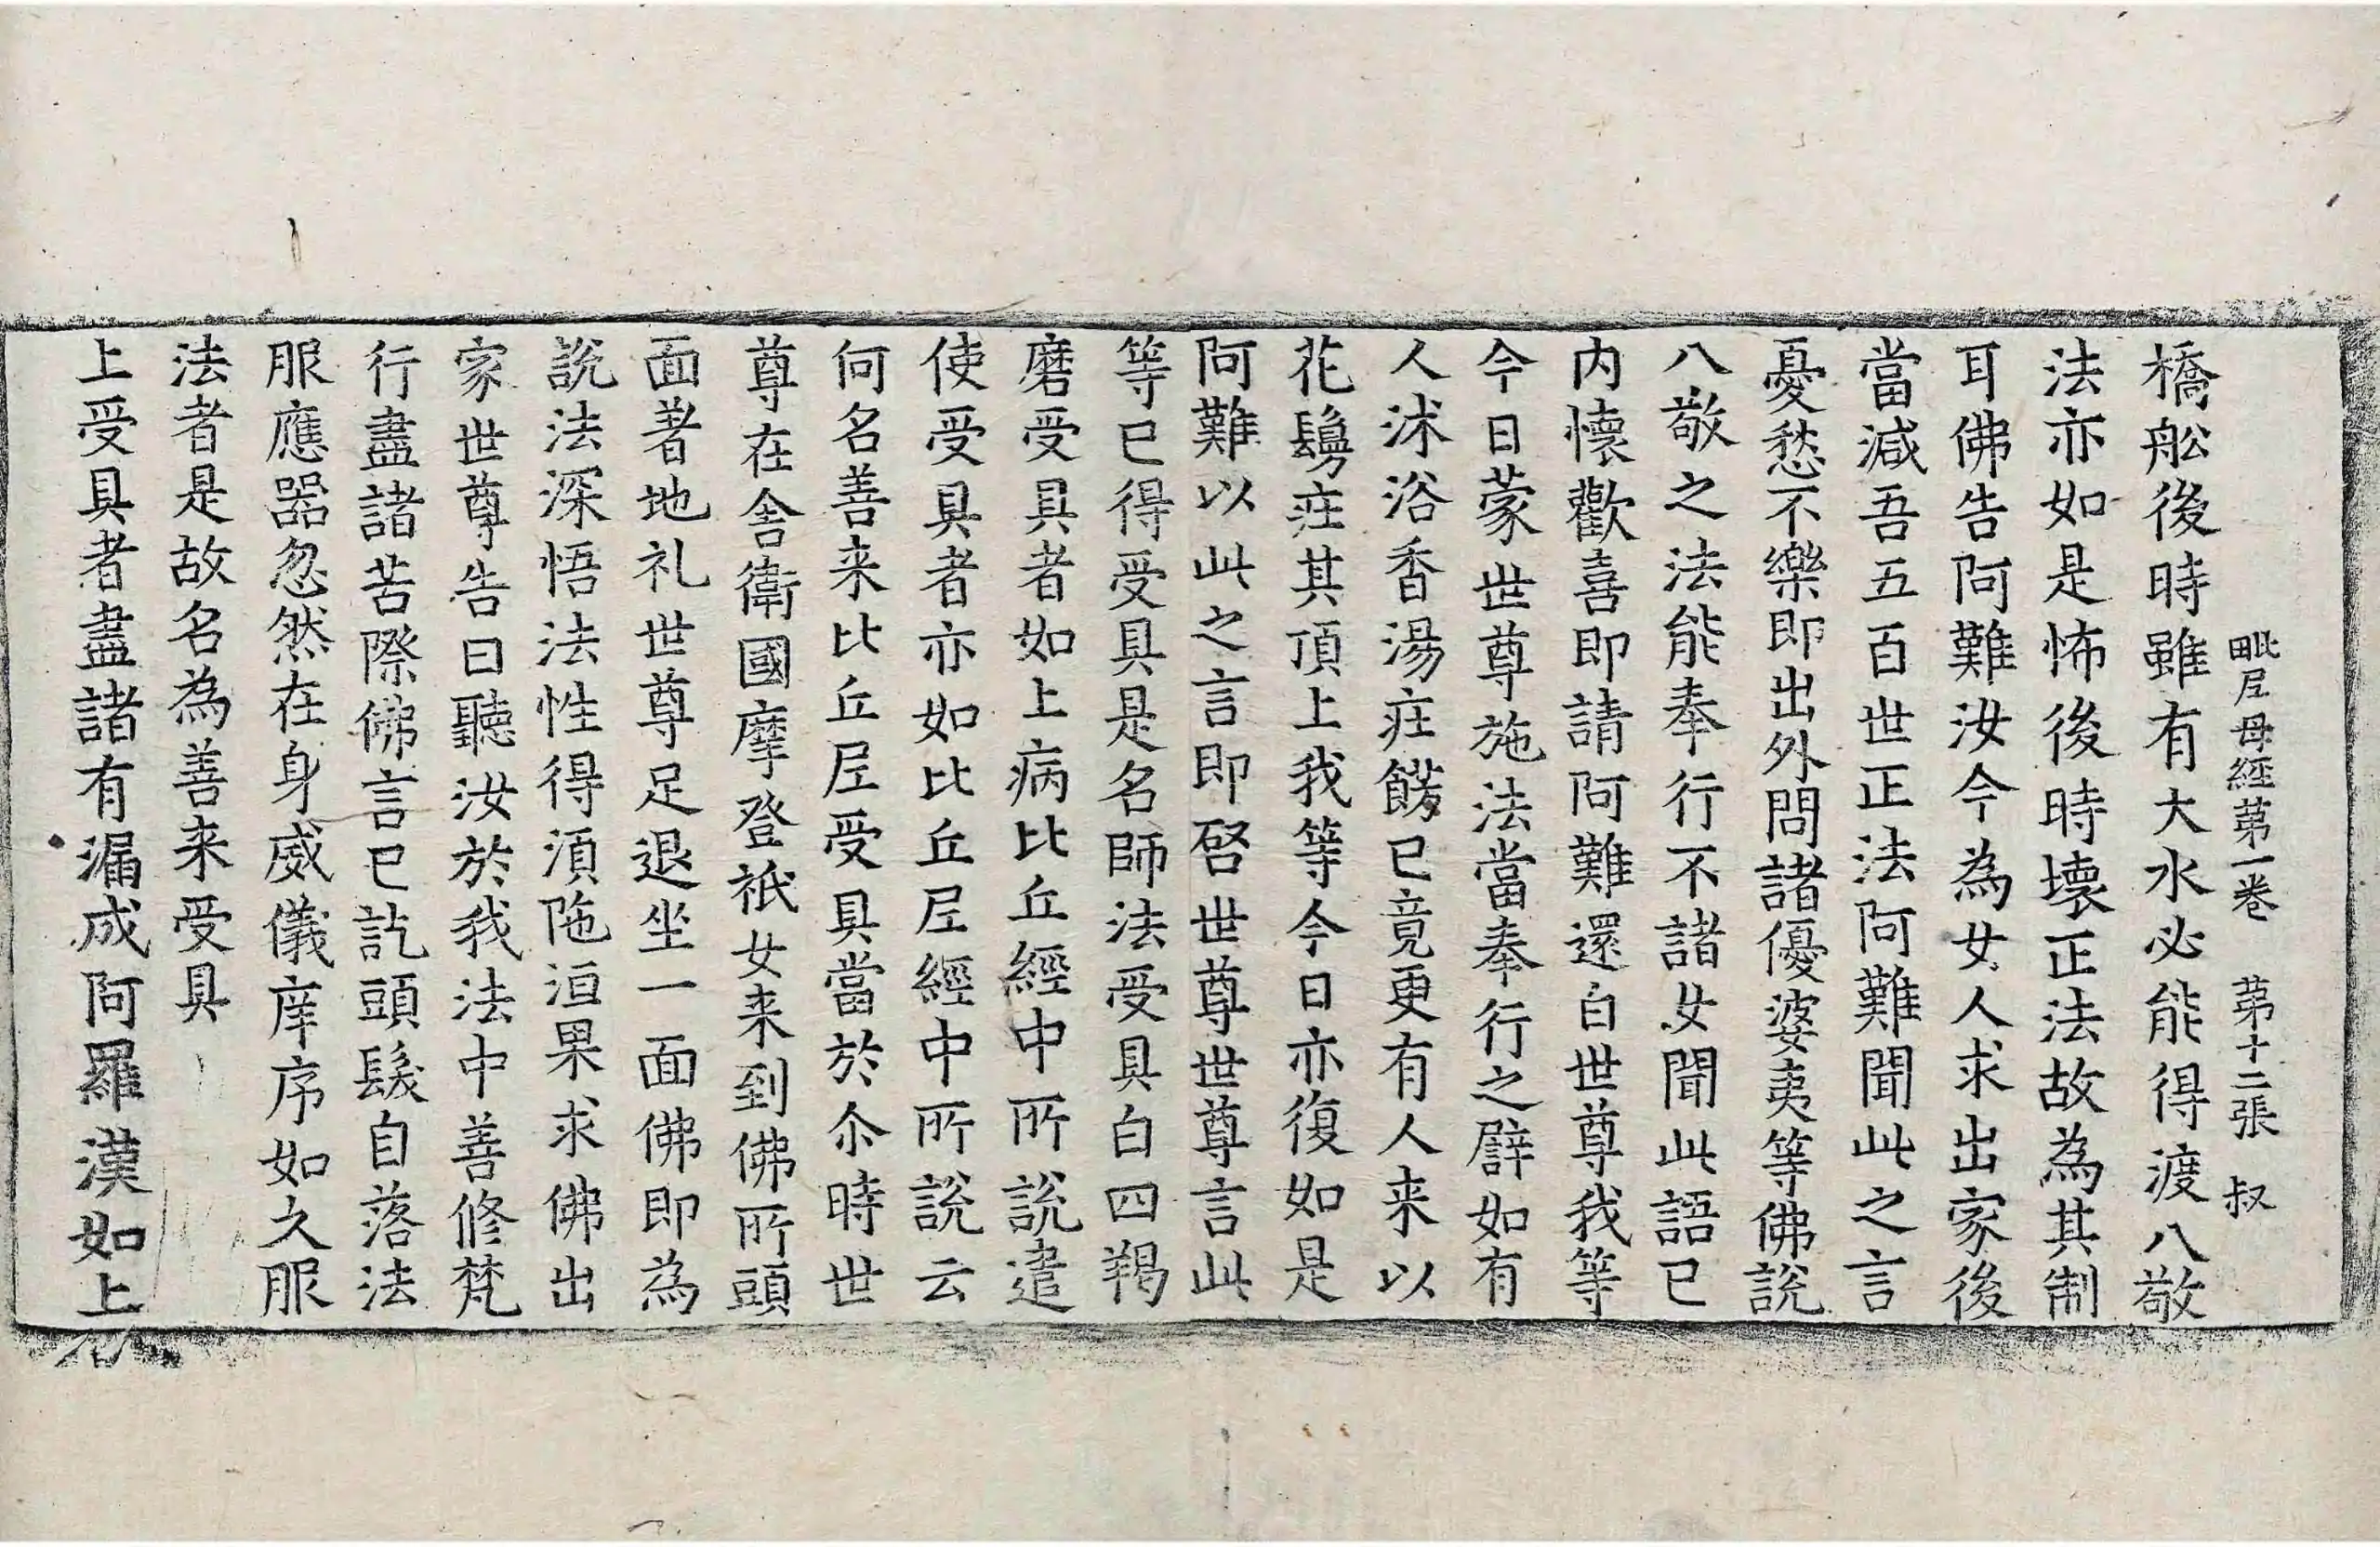 毗尼母經第一卷 第十二張 叔
橋舩後時雖有大水必能得渡八敬
法亦如是怖後時壞正法故為其制
耳佛告阿難汝今為女人求出家後
當減吾五百世正法阿難聞此之言
憂愁不樂即出外問諸優婆夷等佛說
八敬之法能奉行不諸女聞此語已
内懷歡喜即請阿難還白世尊我等
今日蒙世尊施法當奉行之譬如有
人沐浴香湯疰餝已竟更有人来以
花鬘疰其頂上我等今日亦復如是
阿難以此之言即啓世尊世尊言此
等已得受具是名師法受具白四羯
磨受具者如上病比丘經中所說遣
使受具者亦如比丘尼經中所說云
何名善来比丘尼受具當於尒時世
尊在舍衛國摩登祇女来到佛所頭
面著地礼世尊足退坐一面佛即為
說法深悟法性得湏陁洹果求佛出
家世尊告曰聽汝於我法中善修梵
行盡諸苦際佛言已訖頭髮自落法
服應器忽然在身威儀庠序如久服
法者是故名為善来受具
上受具者盡諸有漏成阿羅漢如上